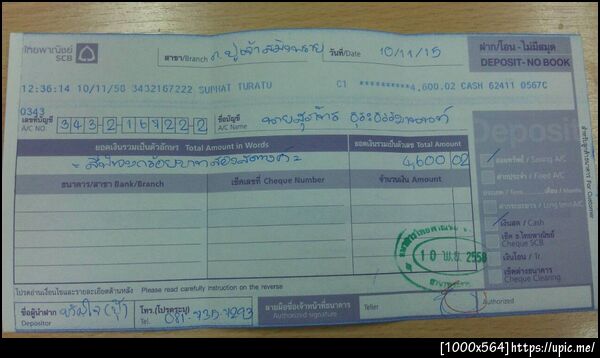 ไทยพาณิชย์ SCB
สาขา/Branch ถ.ปู่เจ้าสมิงพราย วันที่/Date 10/11/15
ฝาก/โอน - ไม่มีสมุด
DEPOSIT - NO BOOK
12:36:14 10/11/50 3432167222 SUPHAT TURATU C1 **********4,600.02 CASH 62411 0567C
0343
เลขที่บัญชี A/C NO. 343-2-16722-2 ชื่อบัญชี A/C Name
Deposit
ยอดเงินรวมเป็นตัวอักษร Total Amount in Words ยอดเงินรวมเป็นตัวเลข Total Amount
= สี่พันหกร้อยบาทสองสตางค์ = 4,600 02
ธนาคาร/สาขา Bank/Branch เช็คเลขที่ Cheque Number จำนวนเงิน Amount
ออมทรัพย์ / Saving A/C
ฝากประจำ / Fixed A/C
เงินสด / Cash
เช็ค ธ.ไทยพาณิชย์
Cheque SCB
เงินโอน / Tr.
เช็คต่างธนาคาร
Cheque Clearing
สำหรับลูกค้า/For Customer
10 พ.ย. 2558
โปรดอ่านเงื่อนไขและรายละเอียดด้านหลัง Please read carefully instruction on the reverse
ชื่อผู้นำฝาก Depositor โทร.(โปรดระบุ) Tel. 081-735-7293 ลายมือชื่อเจ้าหน้าที่ธนาคาร Authorized signature Teller Authorized
[1000x564]https://upic.me/